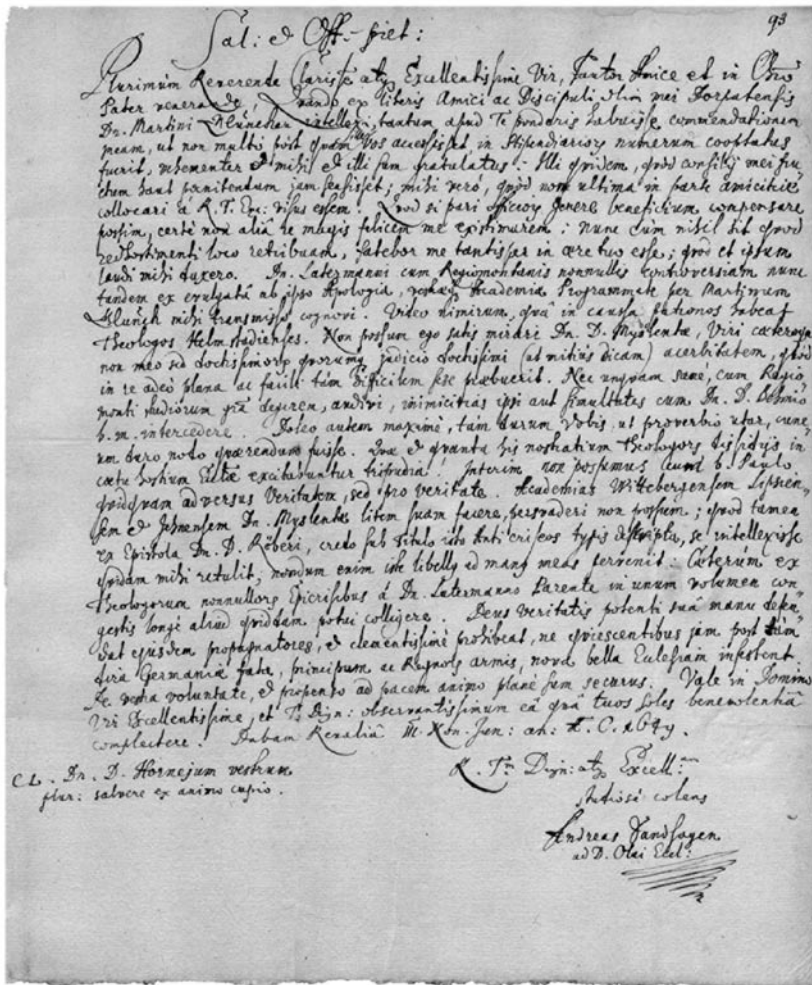 93
Sal: & Off: piet:
Plurimùm Reverende Clarissime atq; Excellentissime Vir, Fautor Amice et in Chro
Pater venerande, Quando ex literis Amici ac Discipuli olim mei Dorpatensis
Dn. Martini intellexi, tantum apud Te ponderis habuisse commendationem
meam, ut non multò post quàm ad vos accessisset, in Stipendiarior numerum cooptatus
fuerit, vehementer & mihi & illi sum gratulatus: Illi quidem, quòd consilij mei fru„
ctum haut poenitendum jam sensisset; mihi verò, quòd non ultima in parte amicitiae
collocari à R. T. Exc: visus essem. Quod si pari officior genere beneficium compensare
possim, certè non aliâ re magis felicem me existimarem: nunc cum nihil sit quod
redhostimenti loco retribuam, fatebor me tantisper in aere tuo esse; quod et ipsum
laudi mihi duxero. Dn. Latermanni cum Regiomontanis nonnullis controversiam nunc
tandem ex evulgatâ ab ipso Apologiâ, Academiae Programmate per Martinum
mihi transmisso cognovi. Video nimirum, quâ in caussâ patronos habeat
Theologos Helmstadienses. Non possum ego satis mirari Dn. D. Myslentae, Viri caeteroqui
non meo sed doctissimorum quorumq; judicio doctissimi (ut mitius dicam) acerbitatem, quod
in re adeò plana ac facili tàm difficilem sese praebuerit. Nec unquam sanè, cum Regio
monti studiorum grâ degerem, audivi, inimicitias ipsi aut simultates cum Dn. D. Behmio
b. m. intercedere. Doleo autem maximè, tàm durum vobis, ut proverbio utar, cune„
um duro nodo quaerendum fuisse. Quae & quanta his nostratium Theologorum dissidijs in
coetu hostium Eccliae excitabuntur tripudia! Interim non possumus cum b. Paulo
quidquam adversus Veritatem, sed pro veritate. Academias Wittebergensem Lipsien„
sem & Jehnensem Dn. Myslentae litem suam facere, persvaderi non possum; quod tamen
ex Epistola Dn. D. Röberi, credo sub titulo isto Anti criseos typis descripta, se intellexisse
quidam mihi retulit; nondum enim iste libellus ad manus meas pervenit: Caeterùm ex
Theologorum nonnullorum Epicrisibus à Dn. Latermanno Parente in unum volumen con
gestis longè aliud quiddam potui colligere. Deus veritatis potenti suâ manu defen„
dat ejusdem propugnatores, & clementissimè prohibeat, ne quiescentibus jam post tàm
dira Germaniae fata, principum ac Regnorum armis, nova bella Ecclesiam infestent.
De vestra voluntate, & propenso ad pacem animo planè sum securus. Vale in Domino
Vir Excellentissime, et T. Dign: observantissimum eâ quâ tuos soles benevolentiâ
complectere. Dabam Revaliâ III. Non. Jun: an: A. C. 1649.
CL. Dn. D. Hornejum vestrum
plur: salvere ex animo cupio.
R. Tm Dign: atq; Excell:am
studiosè colens
Andreas Sandhagen
ad D. Olai Eccl: